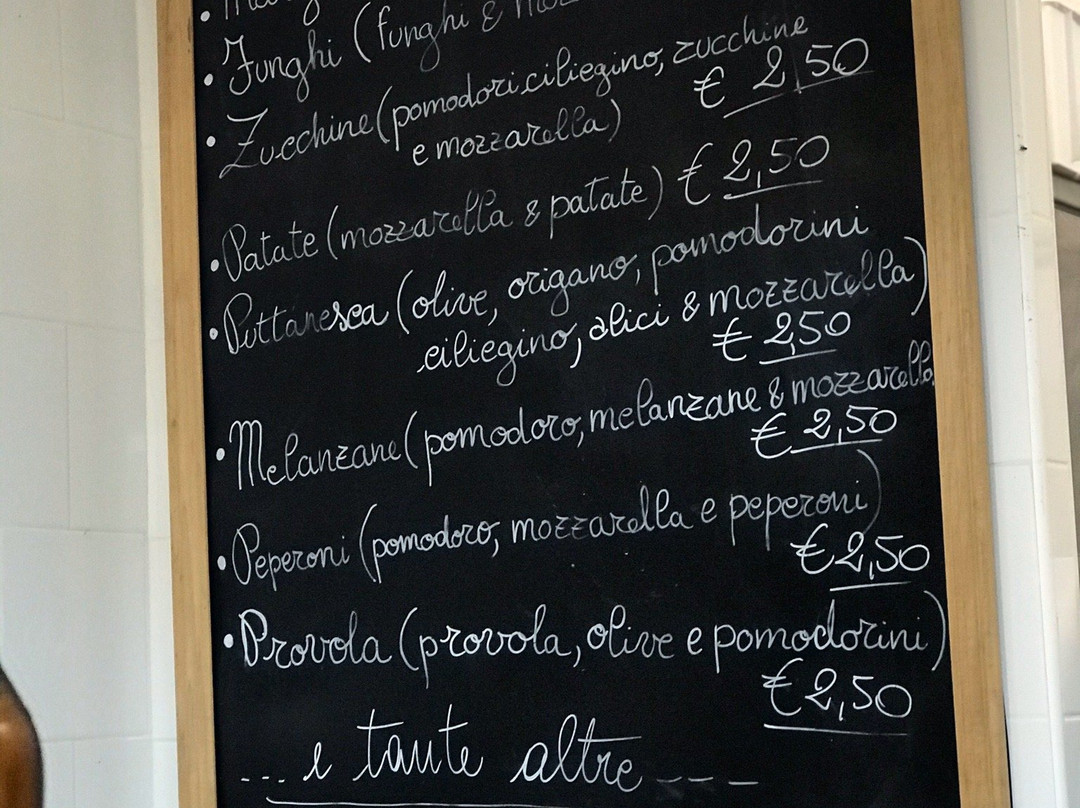 • Funghi (funghi &
• Zucchine (pomodori ciliegino, zucchine
e mozzarella) € 2,50
• Patate (mozzarella & patate) € 2,50
• Puttanesca (olive, origano, pomodorini
ciliegino, alici & mozzarella)
€ 2,50
• Melanzane (pomodoro, melanzane & mozzarella
€ 2,50
• Peperoni (pomodoro, mozzarella e peperoni)
€ 2,50
• Provola (provola, olive e pomodorini)
€ 2,50
... e tante altre ---